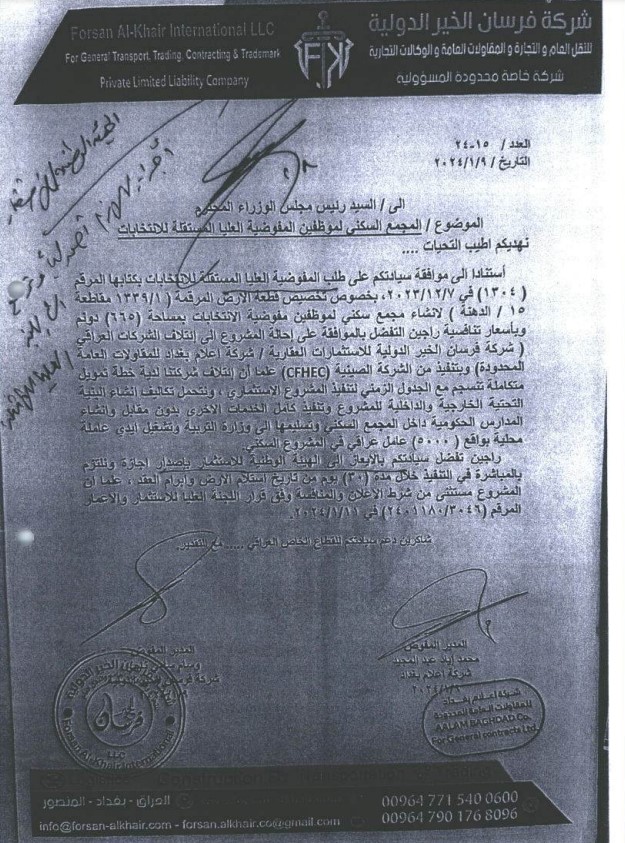 Forsan Al-Khair International LLC
For General Transport, Trading, Contracting & Trademark
Private Limited Liability Company
شركة فرسان الخير الدولية
للنقل العام و التجارة و المقاولات العامة و الوكالات التجارية
شركة خاصة محدودة المسؤولية
العدد / ١٥-٢٤
التاريخ / ٢٠٢٤/١/٩
الى / السيد رئيس مجلس الوزراء المحترم
الموضوع / المجمع السكني لموظفين المفوضية العليا المستقلة للانتخابات
نهديكم اطيب التحيات ....
استنادا الى موافقة سيادتكم على طلب المفوضية العليا المستقلة للانتخابات بكتابها المرقم
( ١٣٠٤ ) في ٢٠٢٣/١٢/٧، بخصوص تخصيص قطعة الارض المرقمة ( ١٣٣٩/١ مقاطعة
١٥ / الدهنة ) لانشاء مجمع سكني لموظفين مفوضية الانتخابات بمساحة (٦٦٥) دونم
وبأسعار تنافسية راجين التفضل بالموافقة على إحالة المشروع الى إئتلاف الشركات العراقي
( شركة فرسان الخير الدولية للاستثمارات العقارية / شركة اعلام بغداد للمقاولات العامة
المحدودة) وبتنفيذ من الشركة الصينية (CFHEC) علما أن إئتلاف شركتنا لدية خطة تمويل
متكاملة تنسجم مع الجدول الزمني لتنفيذ المشروع الاستثماري ، ونتحمل تكاليف انشاء البنية
التحتية الخارجية والداخلية للمشروع وتنفيذ كامل الخدمات الاخرى بدون مقابل وانشاء
المدارس الحكومية داخل المجمع السكني وتسليمها الى وزارة التربية وتشغيل ايدي عاملة
محلية بواقع ( ٥٠٠٠) عامل عراقي في المشروع السكني.
راجين تفضل سيادتكم بالايعاز الى الهيئة الوطنية للاستثمار بإصدار اجازة ونلتزم
بالمباشرة في التنفيذ خلال مدة (٣٠) يوم من تاريخ استلام الارض وابرام العقد ، علما أن
المشروع مستثنى من شرط الاعلان والمنافسة وفق قرار اللجنة العليا للاستثمار والاعمار
المرقم (٢٤٠١١٨٠/٣٠٤٦) في ٢٠٢٤/١/١١.
شاكرين دعم سيادتكم للقطاع الخاص العراقي ..... مع التقدير.
المدير المفوض
محمد إياد عبد المجيد
شركة اعلام بغداد
المدير المفوض
وسام
شركة
شركة اعلام بغداد
للمقاولات العامة المحدودة
AALAM BAGHDAD Co.
For General contracts Ltd.
فرسان
LLC
Forsan Al-Khair International
العراق - بغداد - المنصور
info@forsan-alkhair.com - forsan.alkhair.co@gmail.com
00964 771 540 0600
00964 790 176 8096